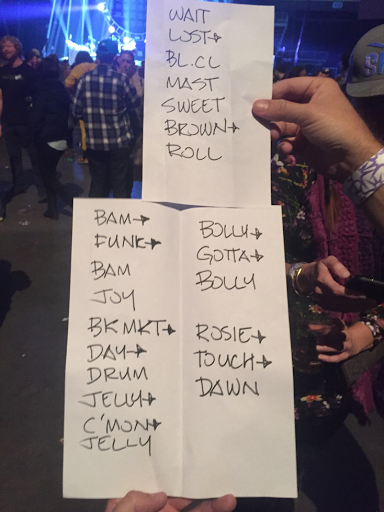 WAIT
LOST→
BL.CL
MAST
SWEET
BROWN→
ROLL
BAM→
FUNK→
BAM
JOY
BKMKT→
DAY→
DRUM
JELLY→
C'MON→
JELLY
BOLLY→
GOTTA→
BOLLY
ROSIE→
TOUCH→
DAWN